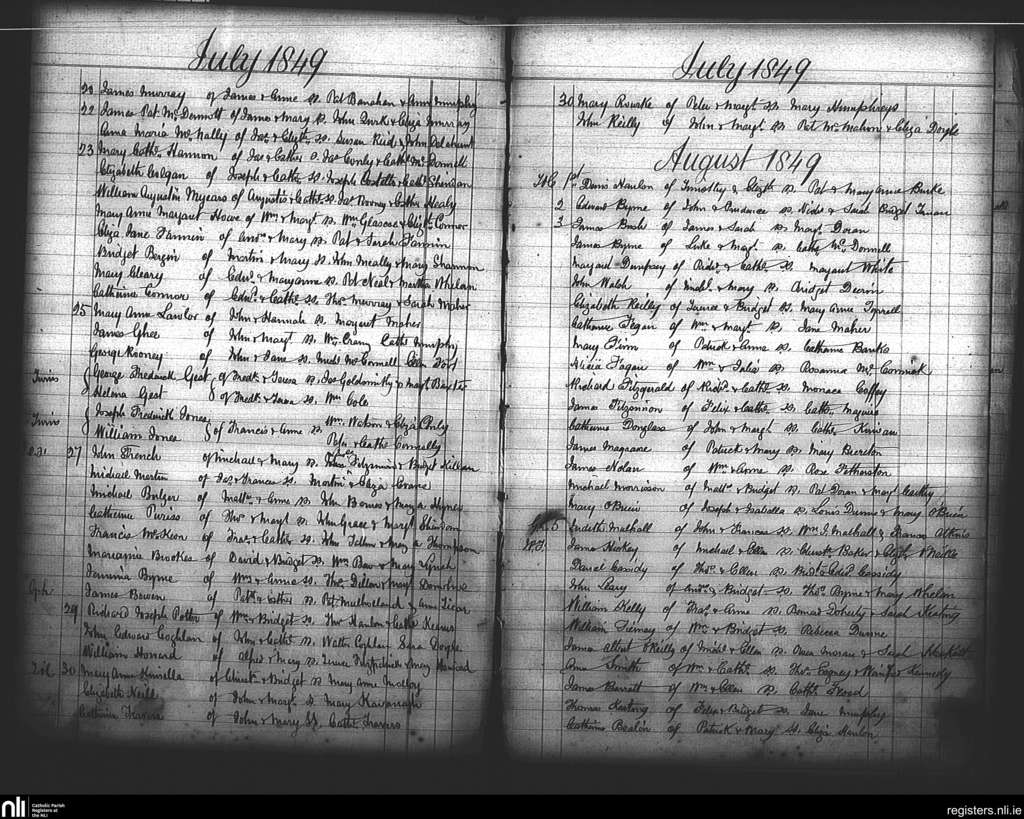 July 1849
20 James Murray of James & Anne Ss. Pat Banahan & Ann Murphy
22 James Pat McDermott of James & Mary Ss. John Quirk & Eliza Murray
Anna Maria McNally of Jas. & Elizth. Ss. Susan Reid & John Delahunt
23 Mary Cathe. Hannon of Jas & Cathe S. Jas Conly & Cathe McDonnell
Elizabeth Colgan of Joseph & Cathe Ss. Joseph Costello & Cathe Sheridan
William Augustin Mycars of Augustin & Cathe Ss. Jas Rooney & Cathe Healy
Mary Anne Margaret Howe of Wm & Margt Ss. Wm Glascoe & Elizth Connor
Eliza Jane Fannin of & Mary Ss. Pat & Sarah Fannin
Bridget Bergin of Martin & Mary Ss. John Meally & Mary Shannon
Mary Cleary of Edwd. & Maryanne Ss. Pat Neal & Martha Whelan
Catherine Connor of Edwd. & Cathe. Ss. Thos Murray & Sarah Maher
25 Mary Anne Lawlor of John & Hannah Ss. Margaret Maher
James Ghee of John & Margt. Ss. Wm Crany Cathe Murphy
George Rooney of John & Jane Ss. Michl McConnell Ellen
Twins George Frederick Gest of Fredk. & Teresa Ss. Jas Goldsmith & Margt
Helena Gest of Fredk. & Ss. Wm Cole
Twins Joseph Frederick Jones of Francis & Anne Ss. Wm. Watson & Eliza
William Jones Peter & Cathe Connolly
27 John French of Michael & Mary Ss. John Fitzsimons & Bridget
Michael Martin of Jas. & Frances Ss. Martin & Eliza
Michael Bolger of Matt. & Anne Ss. John & Mary Hynes
Catherine of Thos & Margt Ss. John Grace & Margt Sheridan
Francis McKeon of Fras. & Cathe Ss. John & Mary Thompson
Maryanne Brookes of David & Bridget Ss. Wm & Mary Lynch
Jemima Byrne of Wm & Anne Ss. Thos Dillon & Mary Donohoe
James Bowen of Patk. & Esther Ss. Pat Mulholland & Ann
29 Richard Joseph Potter of Wm & Bridget Ss. Thos Hanlon & Cathe Kearns
John Edward Coghlan of John & Cathe. Ss. Walter Coghlan Sara Doyle
William Howard of Alfred & Mary Ss. Fitzpatrick & Mary Howard
30 Mary Anne Kinsella of Christr. & Bridget Ss. Mary Anne Molloy
Elizabeth Neill of John & Margt. Ss. Mary Kavanagh
Catherine Travers of John & Mary Ss. Cathe Travers
July 1849
30 Mary Rourke of Peter & Margt Ss. Mary Humphreys
John Reilly of John & Margt. Ss. Pat McMahon & Eliza Doyle
August 1849
1st Denis Hanlon of Timothy & Elizth Ss. Pat & Mary Anne Burke
2 Edward Byrne of John & Prudence Ss. Nichs & Sarah
3 James Bush of James & Sarah Ss. Margt. Doran
James Byrne of Luke & Margt Ss. Cathe McDonnell
Margaret Dempsey of Richd & Cathe Ss. Margaret White
John Walsh of Michl. & Mary Ss. Bridget
Elizabeth Reilly of & Bridget Ss. Mary Anne Tyrrell
Catherine Fegan of Wm & Margt. Ss. Jane Maher
Mary Finn of Patrick & Anne Ss. Catherine Banks
Alicia Fagan of Wm & Julia Ss. Rosanna McCormick
Richard Fitzgerald of Richd. & Cathe Ss. Monaca Coffey
James Fitzsimon of Felix & Cathe Ss. Cathe Maguire
Catherine Douglass of John & Margt Ss. Cathe Kirwan
James Magrane of Patrick & Mary Ss. Mary Brereton
James Nolan of Wm & Anne Ss. Rose Fetherston
Michael Morrison of Matt. & Bridget Ss. Pat Doran & Margt
Mary O'Brien of Joseph & Isabella Ss. Louis Dunne & Mary O'Brien
5 Judeth Mulhall of John & Frances Ss. Wm J. Mulhall & Frances
James Hickey of Michael & Ellen Ss. Christr Baker & Elizth
Daniel Cassidy of Thos. & Ellen Ss. & Cassidy
John Leary of & Bridget Ss. Thos Byrne & Mary Whelan
William Kelly of Fras. & Anne Ss. Doherty & Sarah Keating
William Tierney of Wm & Bridget Ss. Rebecca Dunne
James Albert O'Reilly of Michl & Ellen Ss. Owen Moran & Sarah
Anne Smith of Wm & Cathe. Ss. Thos. & Kennedy
James Barratt of Wm & Ellen Ss. Cathe. Flood
Thomas Keating of Felix & Bridget Ss. Jane Murphy
Catherine of Patrick & Mary Ss. Eliza Hanlon
nli
Catholic Parish
Registers at
the NLI
registers.nli.ie